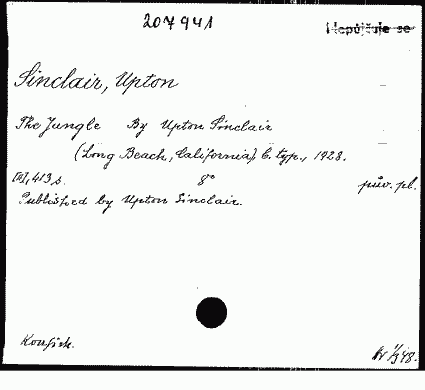 207941
Nepůjčuje se
Sinclair, Upton
The Jungle By Upton Sinclair
(Long Beach, California), b. typ., 1928.
413 s. 8° pův. pl.
Published by Upton Sinclair.
Konfisk.